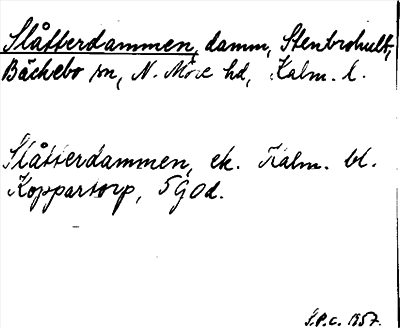 Slåtterdammen, damm, Stenbrohult,
Bäckebo sn, N. Möre hd, Kalm. l.
Slåtterdammen, ek. Kalm. bl.
Koppartorp, 5G0d.
S.P.C. 1957.